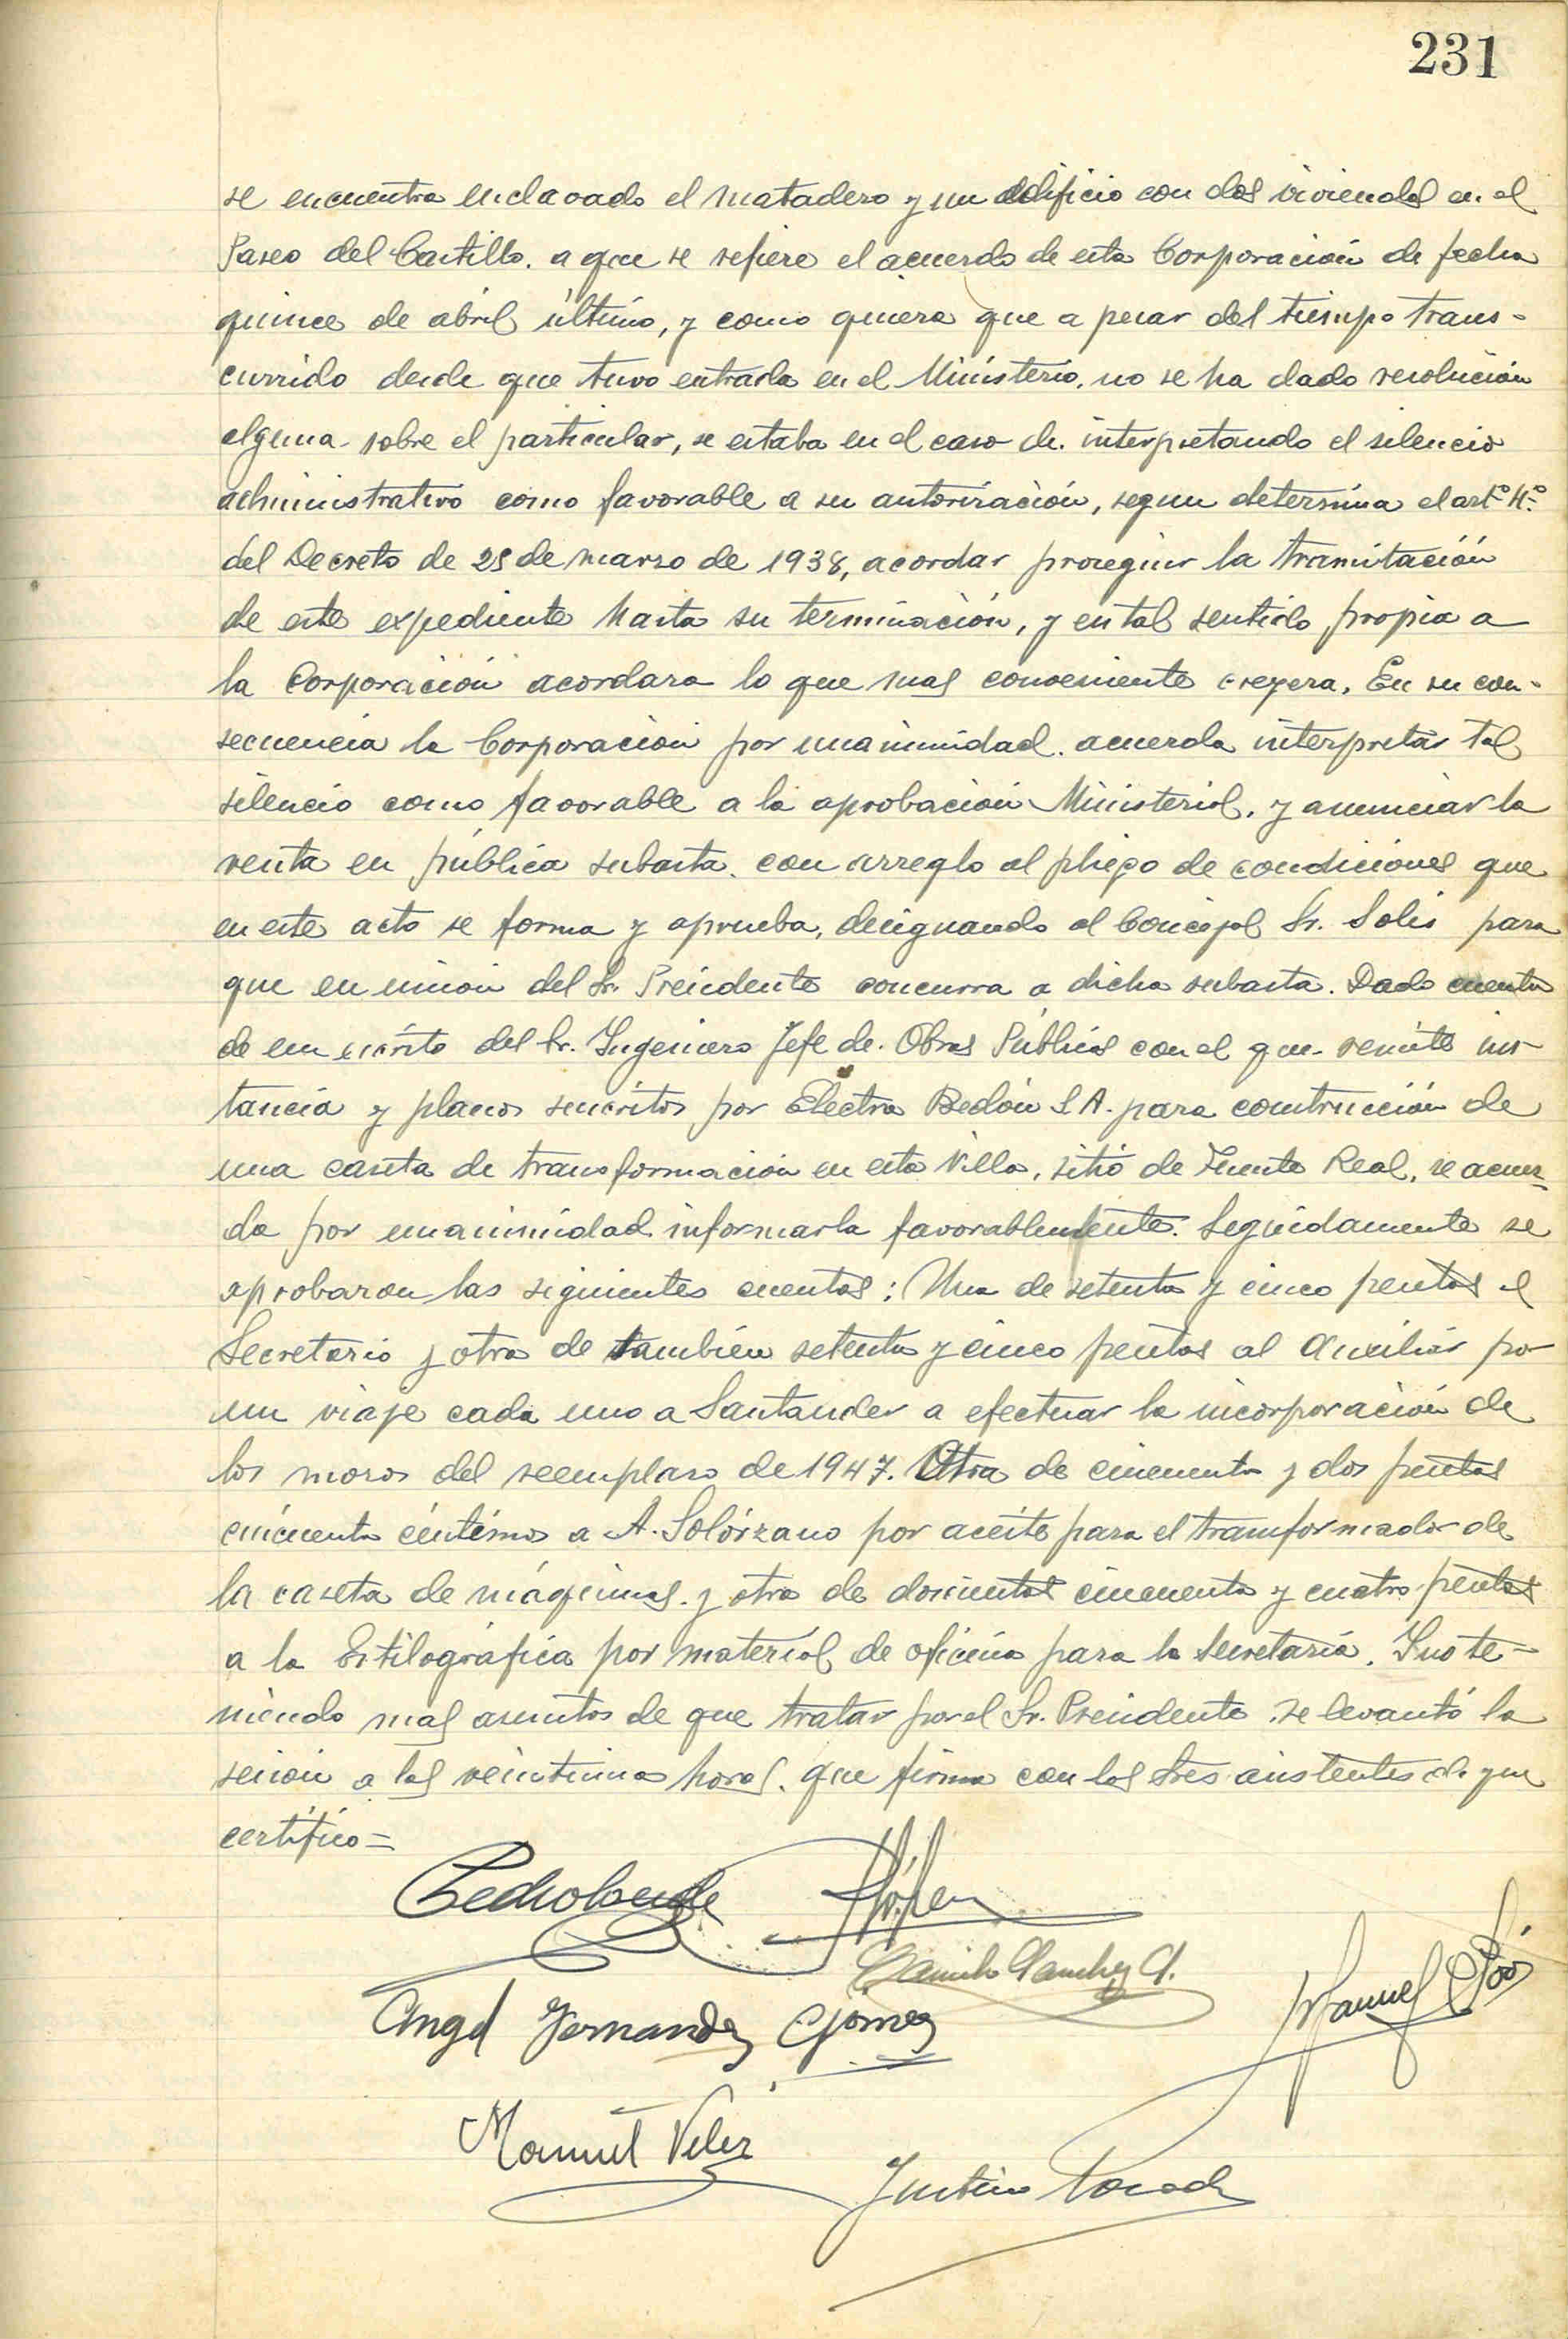 231
se encuentra enclavado el matadero y un edificio con dos viviendas en el
Paseo del Castillo. a que se refiere el acuerdo de esta Corporación de fecha
quince de abril último, y como quiera que a pesar del tiempo trans-
currido desde que tuvo entrada en el Ministerio, no se ha dado resolución
alguna sobre el particular, se estaba en el caso de interpretando el silencio
administrativo como favorable a su autorización, segun determina el artº 4º
del Decreto de 25 de marzo de 1938, acordar proseguir la tramitación
de este expediente hasta su terminación, y en tal sentido propia a
la Corporación acordara lo que mas conveniente creyera. En su con-
secuencia la Corporación por unanimidad acuerda interpretar tal
silencio como favorable a la aprobación Ministerial, y anunciar la
venta en pública subasta con arreglo al pliego de condiciones que
en este acto se forma y aprueba, designando al Concejal Sr. Solis para
que en union del Sr. Presidente concurra a dicha subasta. Dado cuenta
de un escrito del Sr. Ingeniero Jefe de Obras Públicas con el que remite ins-
tancia y planos suscritos por Electra Bedón S.A. para construcción de
una caseta de transformación en esta Villa, sitio de Fuente Real, se acuer-
da por unanimidad informarla favorablemente. Seguidamente se
aprobaron las siguientes cuentas: Una de setenta y cinco pesetas al
Secretario y otra de tambien setenta y cinco pesetas al Auxiliar por
un viaje cada uno a Santander a efectuar la incorporación de
los mozos del reemplazo de 1947. Otra de cincuenta y dos pesetas
cincuenta céntimos a A. Solórzano por aceite para el transformador de
la caseta de máquinas y otra de doscientas cincuenta y cuatro pesetas
a la Estilográfica por material de oficina para la Secretaría. Y no te-
niendo mas asuntos de que tratar por el Sr. Presidente se levantó la
sesion a las veintiuna horas. que firma con los Sres asistentes de que
certifico=
Manuel Póo
Angel Fernandez Gómez
Manuel Velez